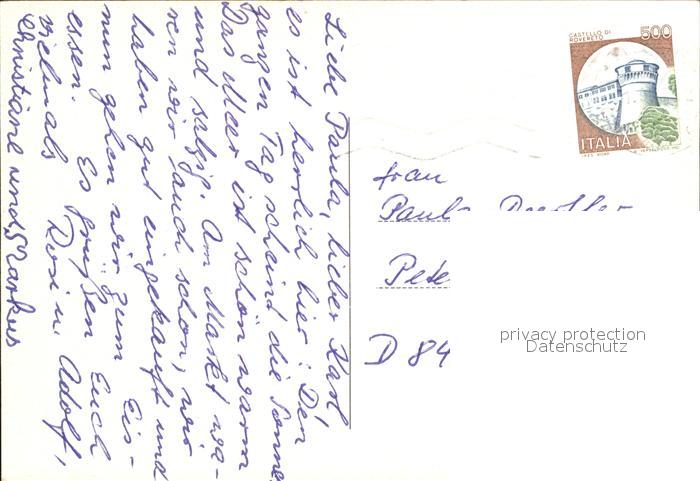 Liebe Paula, lieber Karl,
es ist herrlich hier: Den
ganzen Tag scheint die Sonne
Das Meer ist schön warm
und salzig. Am Markt wa-
ren wir auch schon, wir
haben gut eingekauft und
nun gehen wir zum Eis-
essen. Es grüßen Euch
vielmals Rosi u. Adolf,
Christiane und Markus
CASTELLO DI
ROVERETO
500
ITALIA
Frau
Paula
Pete
D 84
privacy protection
Datenschutz